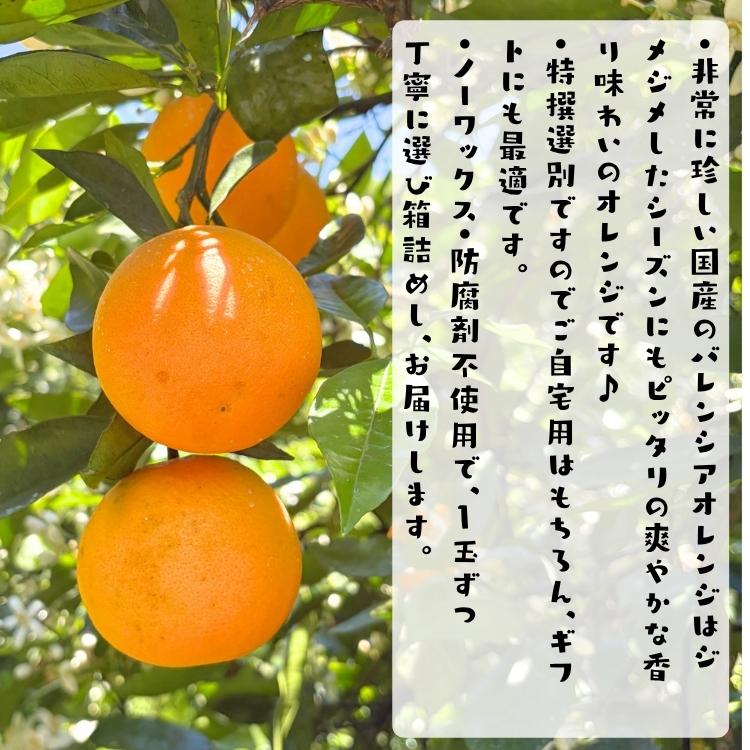 ・非常に珍しい国産のバレンシアオレンジはジ
メジメしたシーズンにもピッタリの爽やかな香
り味わいのオレンジです♪
・特撰選別ですのでご自宅用はもちろん、ギフ
トにも最適です。
・ノーワックス・防腐剤不使用で、1玉ずつ
丁寧に選び箱詰めし、お届けします。